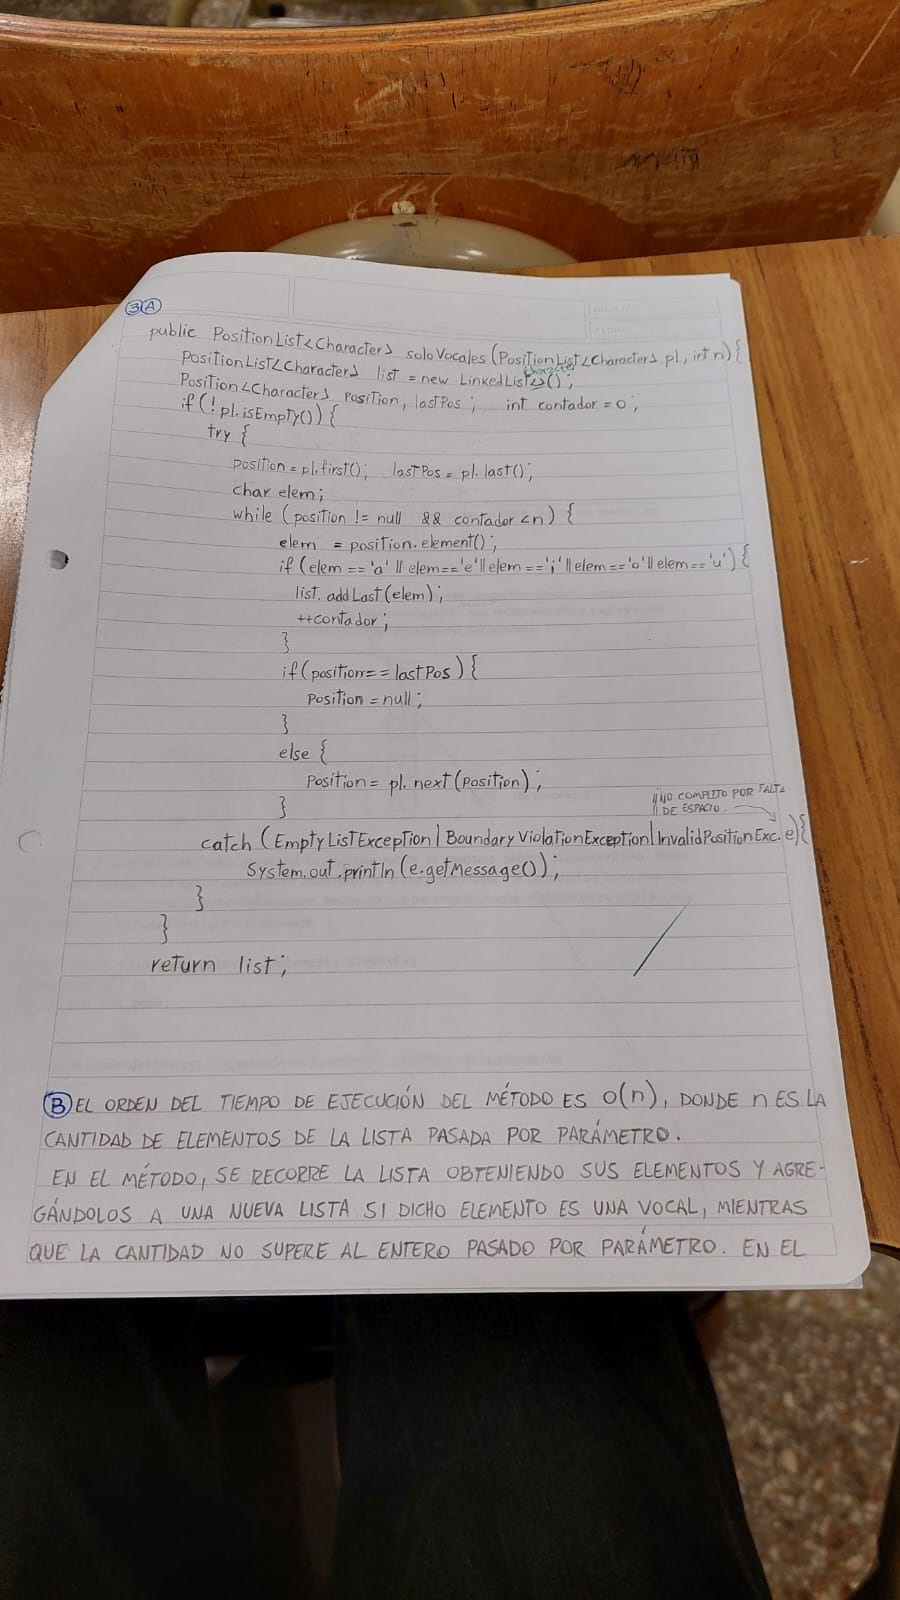 3A
public PositionList<Character> soloVocales (PositionList<Character> pl, int n){
PositionList<Character> list = new LinkedList<>();
Character
Position<Character> position, lastPos; int contador = 0;
if (!pl.isEmpty()) {
try {
position = pl.first(); lastPos = pl.last();
char elem;
while (position != null && contador < n) {
elem = position.element();
if (elem == 'a' || elem == 'e' || elem == 'i' || elem == 'o' || elem == 'u') {
list.addLast(elem);
++contador;
}
if (position == lastPos) {
position = null;
}
else {
position = pl.next(position);
}
// NO COMPLETO POR FALTA
// DE ESPACIO.
catch (EmptyListException | BoundaryViolationException | InvalidPositionExc. e) {
System.out.println(e.getMessage());
}
}
return list;
B EL ORDEN DEL TIEMPO DE EJECUCIÓN DEL MÉTODO ES O(n), DONDE n ES LA
CANTIDAD DE ELEMENTOS DE LA LISTA PASADA POR PARÁMETRO.
EN EL MÉTODO, SE RECORRE LA LISTA OBTENIENDO SUS ELEMENTOS Y AGRE-
GÁNDOLOS A UNA NUEVA LISTA SI DICHO ELEMENTO ES UNA VOCAL, MIENTRAS
QUE LA CANTIDAD NO SUPERE AL ENTERO PASADO POR PARÁMETRO. EN EL